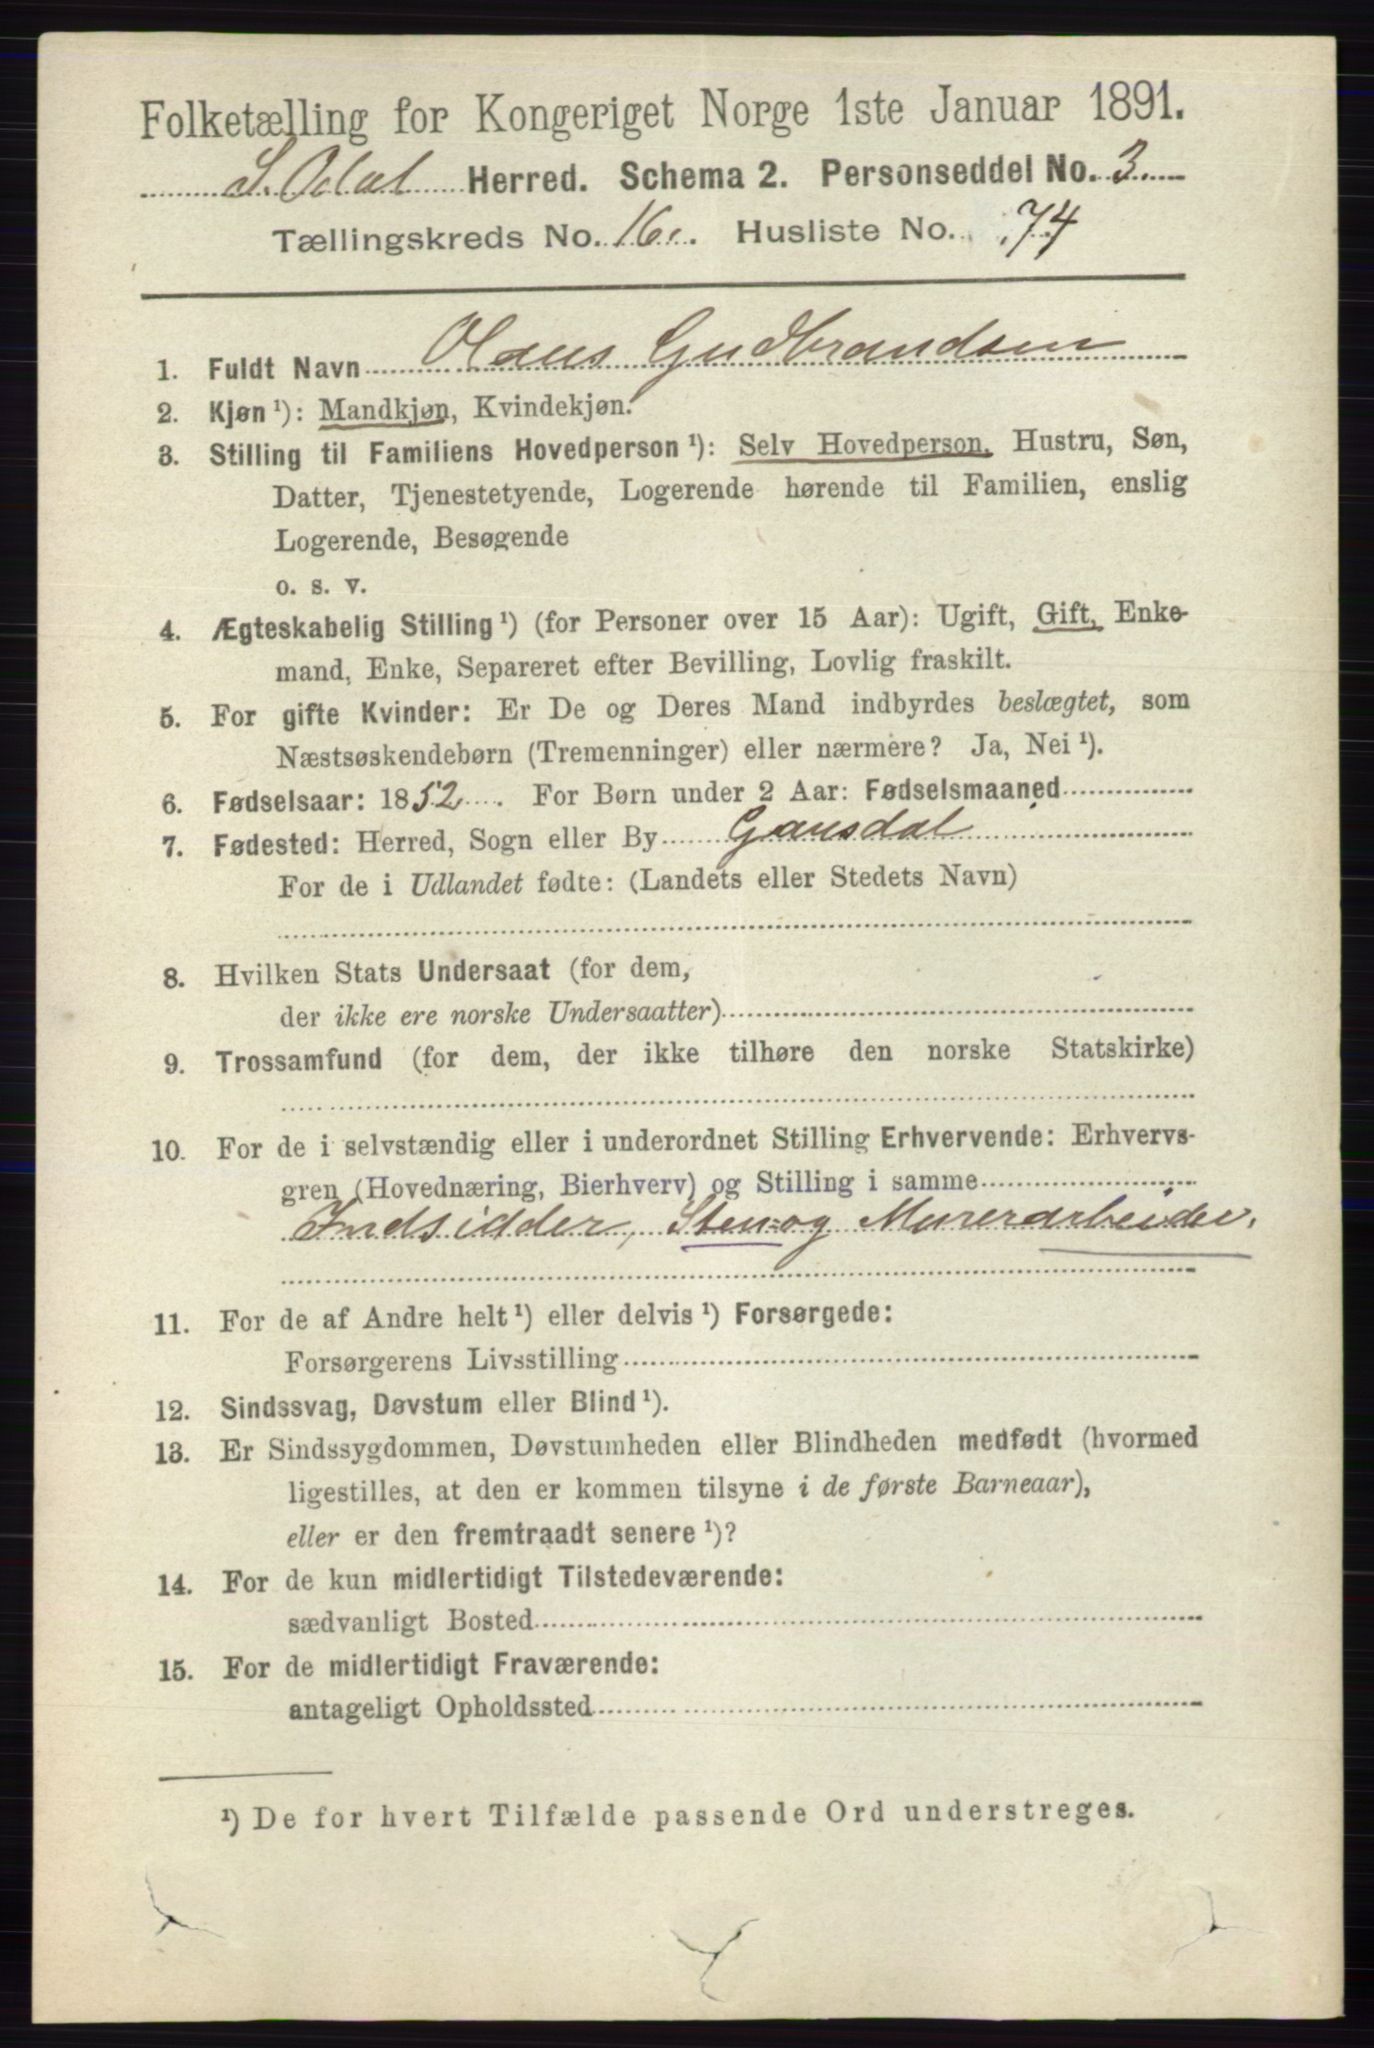 Folketælling for Kongeriget Norge 1ste Januar 1891.
S. Odal Herred. Schema 2. Personseddel No. 3.
Tællingskreds No. 16. Husliste No. 74
1. Fuldt Navn Olaus Gudbrandsen
2. Kjøn ¹): Mandkjøn, Kvindekjøn.
3. Stilling til Familiens Hovedperson ¹): Selv Hovedperson, Hustru, Søn,
Datter, Tjenestetyende, Logerende hørende til Familien, enslig
Logerende, Besøgende
o. s. v.
4. Ægteskabelig Stilling ¹) (for Personer over 15 Aar): Ugift, Gift, Enke-
mand, Enke, Separeret efter Bevilling, Lovlig fraskilt.
5. For gifte Kvinder: Er De og Deres Mand indbyrdes beslægtet, som
Næstsøskendebørn (Tremenninger) eller nærmere? Ja, Nei ¹).
6. Fødselsaar: 1852. For Børn under 2 Aar: Fødselsmaaned
7. Fødested: Herred, Sogn eller By Gausdal
For de i Udlandet fødte: (Landets eller Stedets Navn)
8. Hvilken Stats Undersaat (for dem,
der ikke ere norske Undersaatter)
9. Trossamfund (for dem, der ikke tilhøre den norske Statskirke)
10. For de i selvstændig eller i underordnet Stilling Erhvervende: Erhvervs-
gren (Hovednæring, Bierhverv) og Stilling i samme
Indsidder, Sten- og Murerarbeider.
11. For de af Andre helt ¹) eller delvis ¹) Forsørgede:
Forsørgerens Livsstilling
12. Sindssvag, Døvstum eller Blind ¹).
13. Er Sindssygdommen, Døvstumheden eller Blindheden medfødt (hvormed
ligestilles, at den er kommen tilsyne i de første Barneaar),
eller er den fremtraadt senere ¹)?
14. For de kun midlertidigt Tilstedeværende:
sædvanligt Bosted
15. For de midlertidigt Fraværende:
antageligt Opholdssted
¹) De for hvert Tilfælde passende Ord understreges.